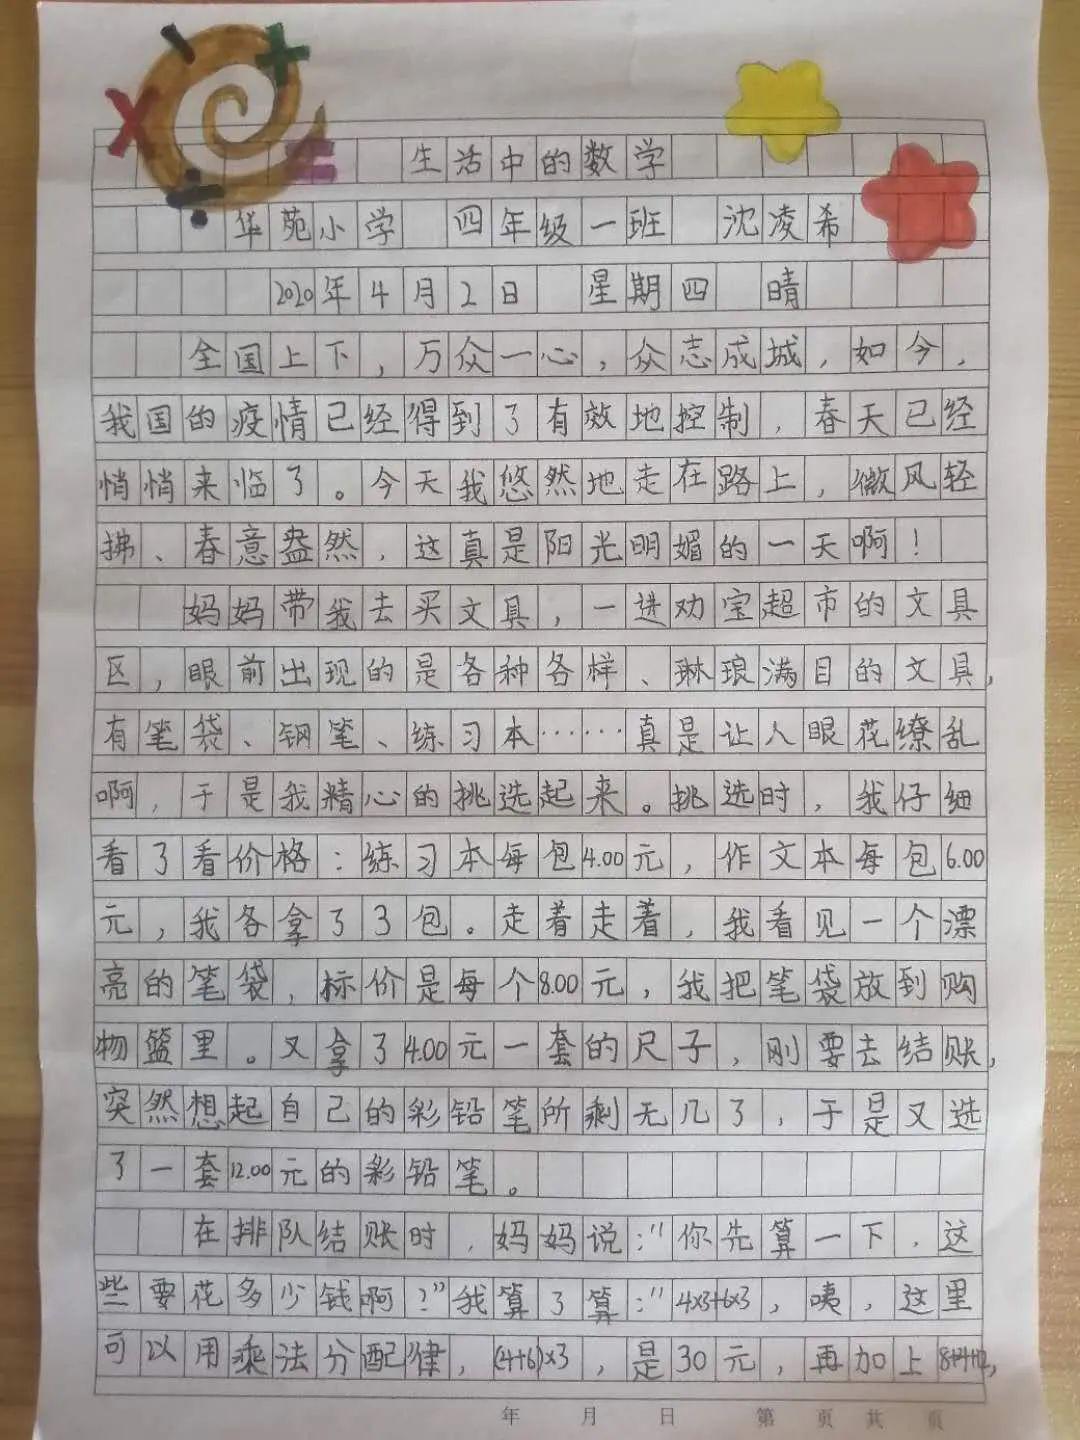 生活中的数学
华苑小学 四年级一班 沈凌希
2020年4月2日 星期四 晴
全国上下，万众一心，众志成城，如今，
我国的疫情已经得到了有效地控制，春天已经
悄悄来临了。今天我悠然地走在路上，微风轻
拂、春意盎然，这真是阳光明媚的一天啊！
妈妈带我去买文具，一进劝宝超市的文具
区，眼前出现的是各种各样、琳琅满目的文具，
有笔袋、钢笔、练习本……真是让人眼花缭乱
啊，于是我精心的挑选起来。挑选时，我仔细
看了看价格：练习本每包4.00元，作文本每包6.00
元，我各拿了3包。走着走着，我看见一个漂
亮的笔袋，标价是每个8.00元，我把笔袋放到购
物篮里。又拿了4.00元一套的尺子，刚要去结账，
突然想起自己的彩铅笔所剩无几了，于是又选
了一套12.00元的彩铅笔。
在排队结账时，妈妈说：“你先算一下，这
些要花多少钱啊？”我算了算：“4×3+6×3，咦，这里
可以用乘法分配律，(4+6)×3，是30元，再加上8+4+12，
年 月 日 第 页 共 页